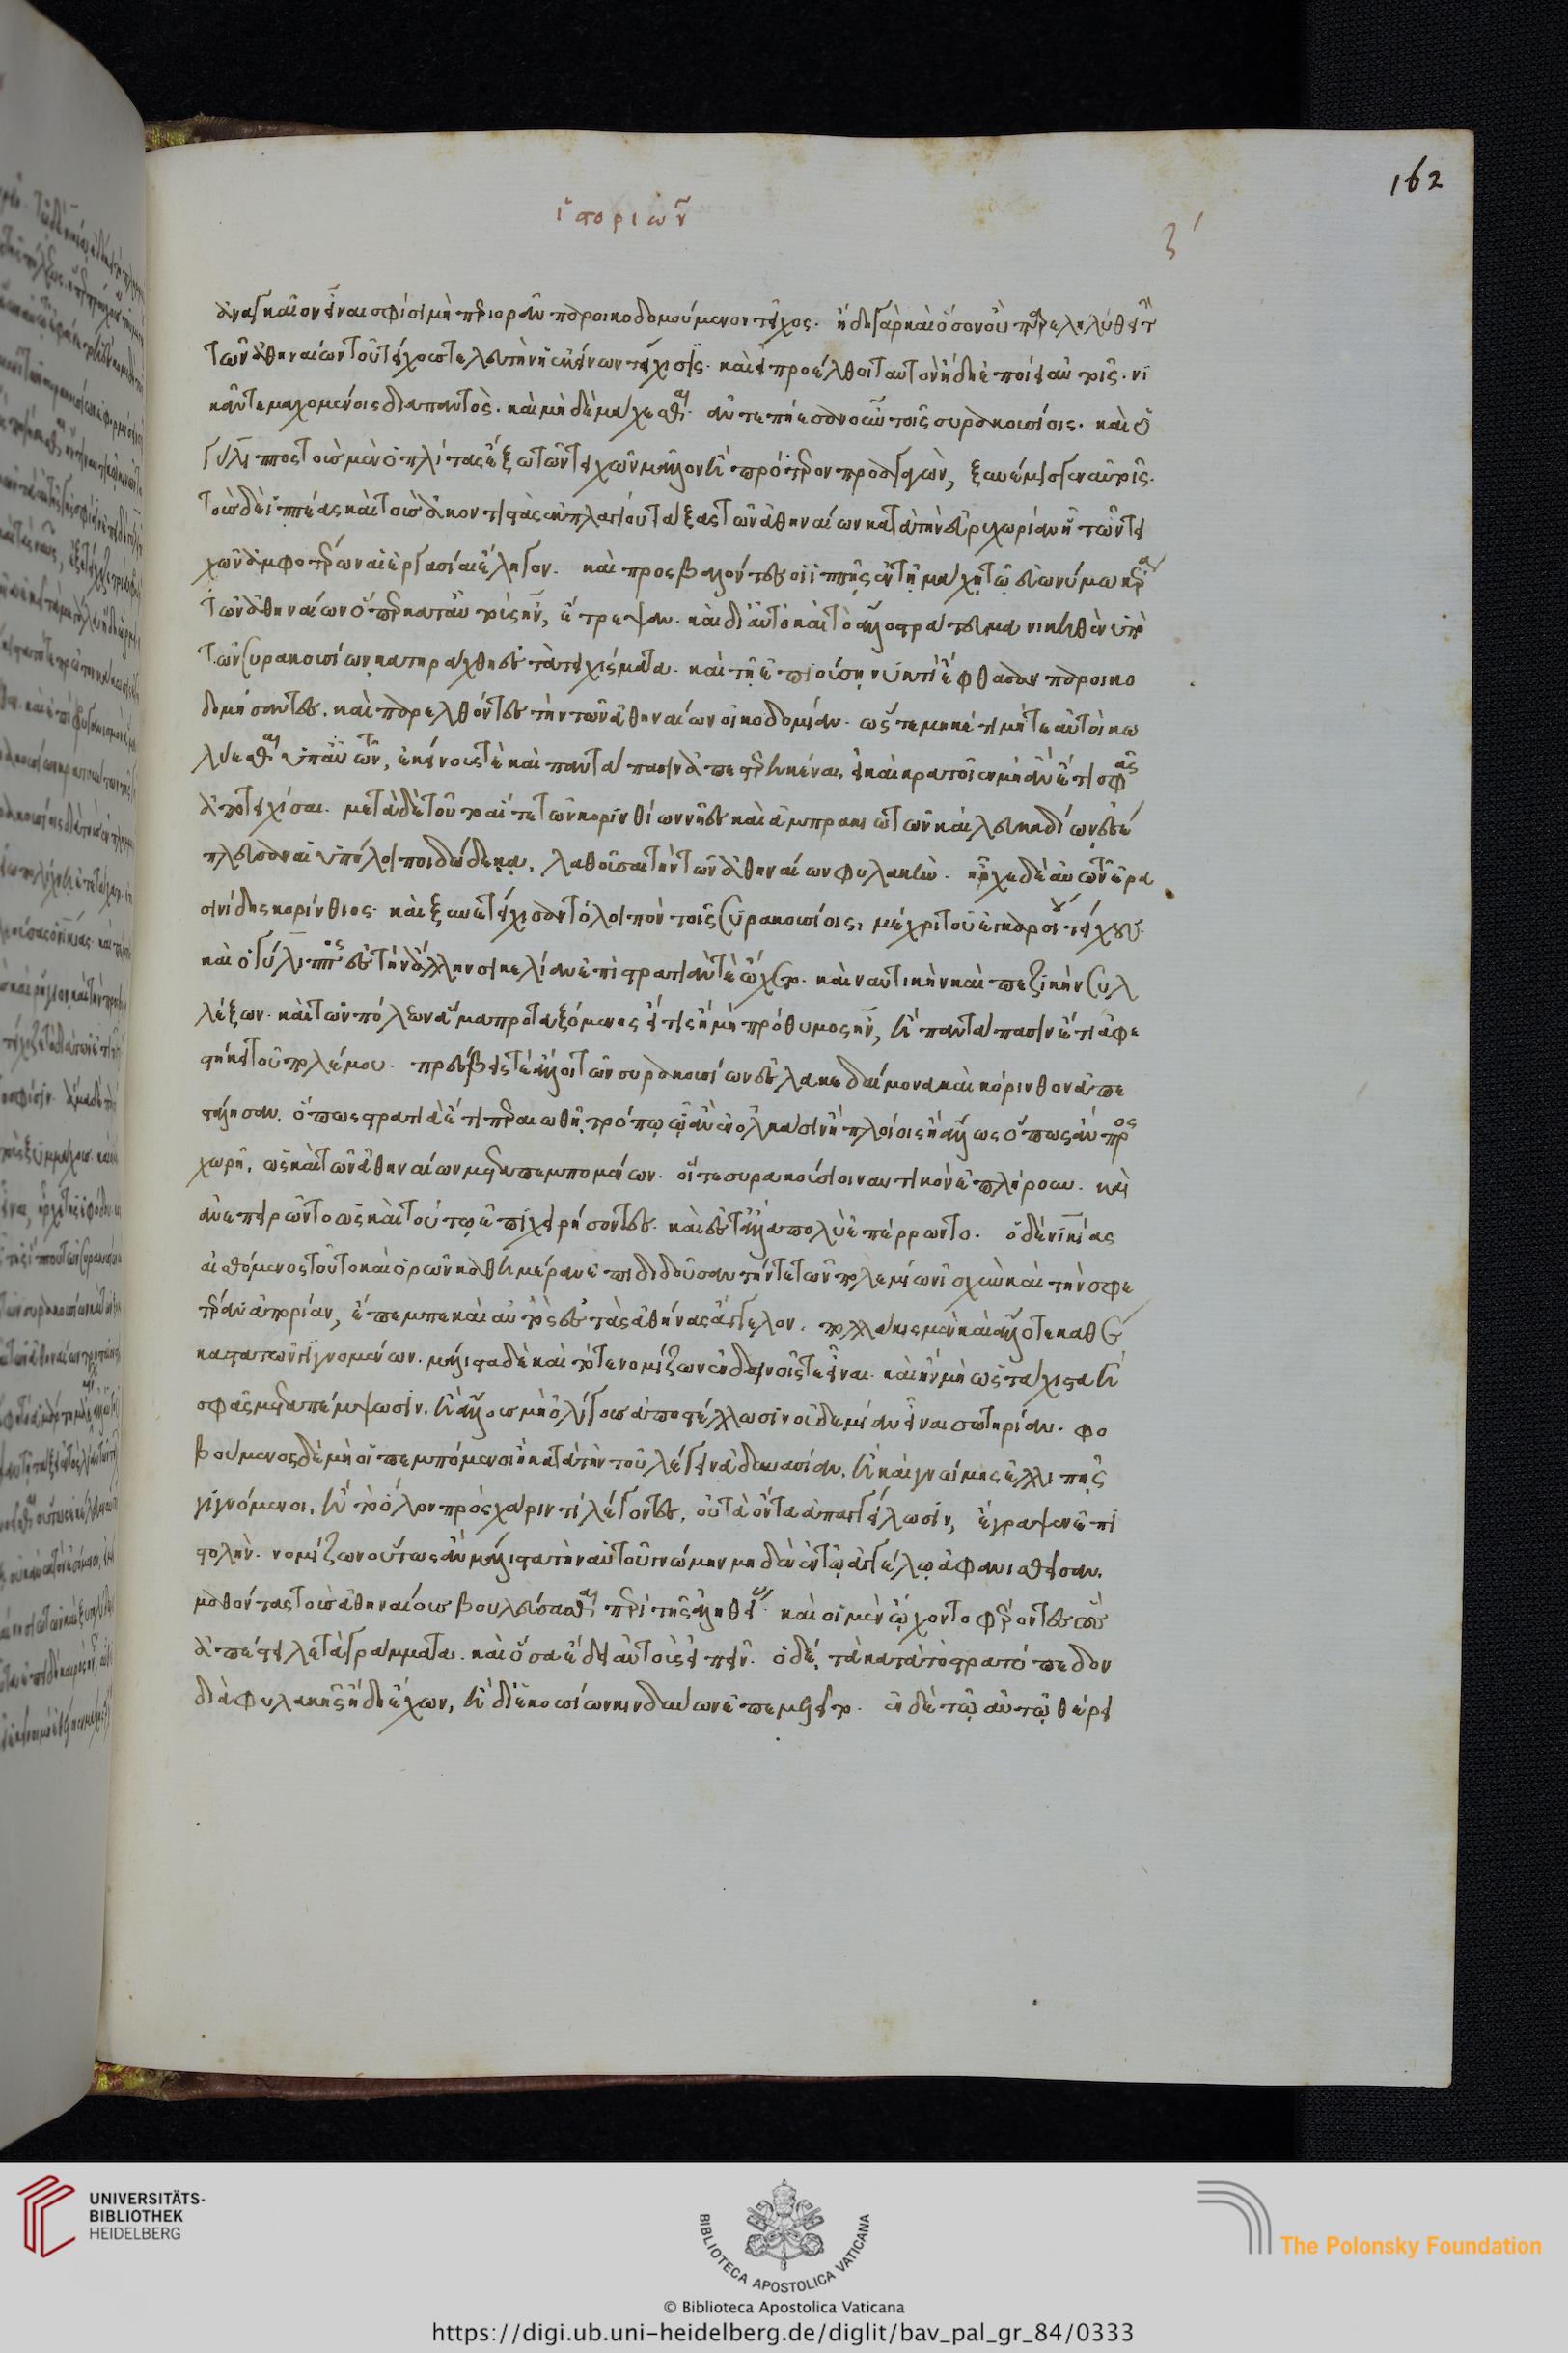 ἱστοριῶν
ζ´
162
ἀναγκαῖον εἶναι σφίσι μὴ περιορᾶν παροικοδομούμενον τεῖχος. ἤδη γὰρ καὶ ὅσον οὐ παρεληλύθει τὴν
τῶν ἀθηναίων τοῦ τείχους τελευτὴν ἡ ἐκείνων τείχισις. καὶ εἰ προέλθοι ταυτὸν ἤδη ἐποίει αὐτοῖς. νι
κᾶν τε μαχομένοις διαπαντὸς. καὶ μηδὲ μάχεσθαι. ἀντεπήεσαν οὖν τοῖς συρακουσίοις. καὶ ὁ
γύλιππος τοὺς μὲν ὁπλίτας ἔξω τῶν τειχῶν μᾶλλον ἢ πρότερον προαγαγὼν, ξυνέμισγεν αὐτοῖς.
τοὺς δὲ ἱππέας καὶ τοὺς ἀκοντιστὰς ἐκ πλαγίου τάξας τῶν ἀθηναίων κατὰ τὴν εὐρυχωρίαν ᾗ τῶν τει
χῶν ἀμφοτέρων αἱ ἐργασίαι ἔληγον. καὶ προσβαλόντες οἱ ἱππῆς ἐν τῇ μάχῃ τῷ εὐωνύμω κέρᾳ
τῶν ἀθηναίων ὅπερ κατ᾽ αὐτοὺς ἦν, ἔτρεψαν. καὶ δι᾽ αὐτὸ καὶ τὸ ἄλλο στράτευμα νικηθὲν ὑπὸ
τῶν συρακουσίων κατηράχθη ἐς τὰ τειχίσματα. καὶ τῇ ἐπιούσῃ νυκτὶ ἔφθασαν παροικο
δομήσαντες. καὶ παρελθόντες τὴν τῶν ἀθηναίων οἰκοδομίαν. ὥστε μηκέτι μήτε αὐτοὶ κω
λύεσθαι ὑπ᾽ αὐτῶν, ἐκείνους τὲ καὶ πανταπασιν ἀπεστερηκέναι, εἰ καὶ κρατοῖεν μὴ ἂν ἔτι σφᾶς
ἀποτειχίσαι. μετὰ δὲ τοῦτο αἵ τε τῶν κορινθίων νῆες καὶ ἀμπρακιωτῶν καὶ λευκαδίων ἐσέ
πλευσαν αἱ ὑπόλοιποι δώδεκα, λαθοῦσαι τὴν τῶν ἀθηναίων φυλακὴν. ἦρχε δὲ αὐτῶν ἐρα
σινίδης κορίνθιος. καὶ ξυνετείχισαν τὸ λοιπὸν τοῖς συρακουσίοις, μέχρι τοῦ ἐγκαρσίου τείχους.
καὶ ὁ γύλιππος ἐς τὴν ἄλλην σικελίαν ἐπὶ στρατιάν τὲ ᾤχετο. καὶ ναυτικὴν καὶ πεζικὴν συλ
λέξων. καὶ τῶν πόλεων ἅμα προσαξόμενος εἴ τις ἢ μὴ πρόθυμος ἦν, ἢ πανταπασιν ἔτι ἀφε
στήκει τοῦ πολέμου. πρέσβεις τὲ ἄλλοι τῶν συρακουσίων ἐς λακεδαίμονα καὶ κόρινθον ἀπε
στάλησαν, ὅπως στρατιὰ ἔτι περαιωθῇ τρόπῳ ᾧ ἂν ἐν ὁλκάσιν ἢ πλοίοις ἢ ἄλλως ὅπως ἂν προ
χωρῇ, ὡς καὶ τῶν ἀθηναίων μεταπεμπομένων. οἵ τε συρακούσιοι ναυτικὸν ἐπλήρουν. καὶ
ἀνεπειρῶντο ὡς καὶ τούτῳ ἐπιχειρήσοντες. καὶ ἐς τἆλλα πολὺ ἐπέρρωντο. ὁ δὲ νικίας
αἰσθόμενος τοῦτο καὶ ὁρῶν καθ᾽ ἡμέραν ἐπιδιδοῦσαν τήν τε τῶν πολεμίων ἰσχὺν καὶ τὴν σφε
τέραν ἀπορίαν, ἔπεμπε καὶ αὐτὸς ἐς τὰς ἀθήνας ἀγγέλλων. πολλάκις μὲν καὶ ἄλλοτε καθ᾽ ἕ
καστα τῶν γιγνομένων. μάλιστα δὲ καὶ τότε νομίζων ἐν δεινοῖς τε εἶναι. καὶ ἢν μὴ ὡς τάχιστα ἢ
σφᾶς μεταπέμψωσιν, ἢ ἄλλους μὴ ὀλίγους ἀποστέλλωσιν οὐδεμίαν εἶναι σωτηρίαν. φο
βούμενος δὲ μὴ οἱ πεμπόμενοι ἢ κατὰ τὴν τοῦ λέγειν ἀδυνασίαν, ἢ καὶ γνώμης ἐλλιπῆς
γιγνόμενοι, ἢ τῷ ὄχλῳ πρὸς χάριν τι λέγοντες, οὐ τὰ ὄντα ἀπαγγέλωσιν, ἔγραψεν ἐπι
στολὴν. νομίζων οὕτως ἂν μάλιστα τὴν αὑτοῦ γνώμην μηδὲν ἐν τῷ ἀγγέλῳ ἀφανισθεῖσαν,
μαθόντας τοὺς ἀθηναίους βουλεύσασθαι περὶ τῆς ἀληθείας. καὶ οἱ μὲν ᾤχοντο φέροντες οὓς
ἀπέστειλε τὰ γράμματα. καὶ ὅσα ἔδει αὐτοὺς εἰπεῖν. ὁ δὲ, τὰ κατὰ τὸ στρατόπεδον
διὰ φυλακῆς ἤδη ἔχων, ἢ δι᾽ ἑκουσίων κινδύνων ἐπεμέλετο. ἐν δὲ τῷ αὐτῷ θέρει
UNIVERSITÄTS-
BIBLIOTHEK
HEIDELBERG
BIBLIOTECA APOSTOLICA VATICANA
The Polonsky Foundation
© Biblioteca Apostolica Vaticana
https://digi.ub.uni-heidelberg.de/diglit/bav_pal_gr_84/0333